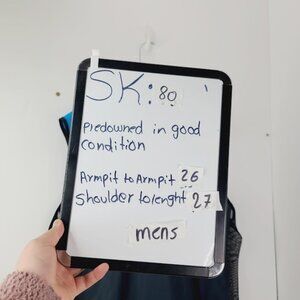 SK: 80
Predowned in good
condition
Armpit to Armpit 26
Shoulder to lenght 27
mens